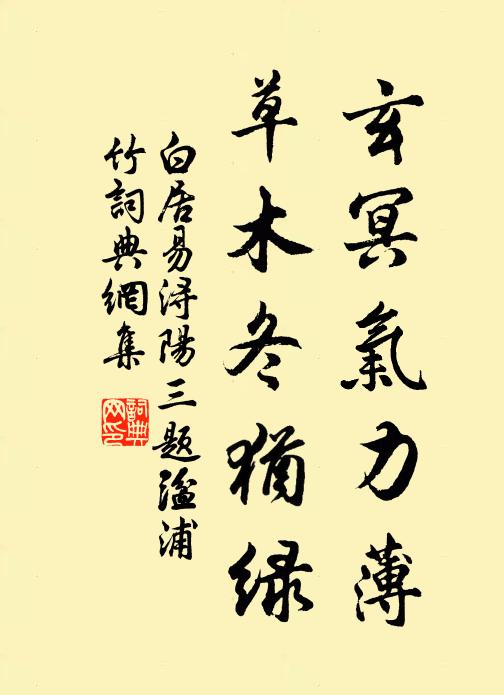 玄冥氣力薄
草木冬猶绿
白居易浔陽三题湓浦
竹詞典網集
詞典网印